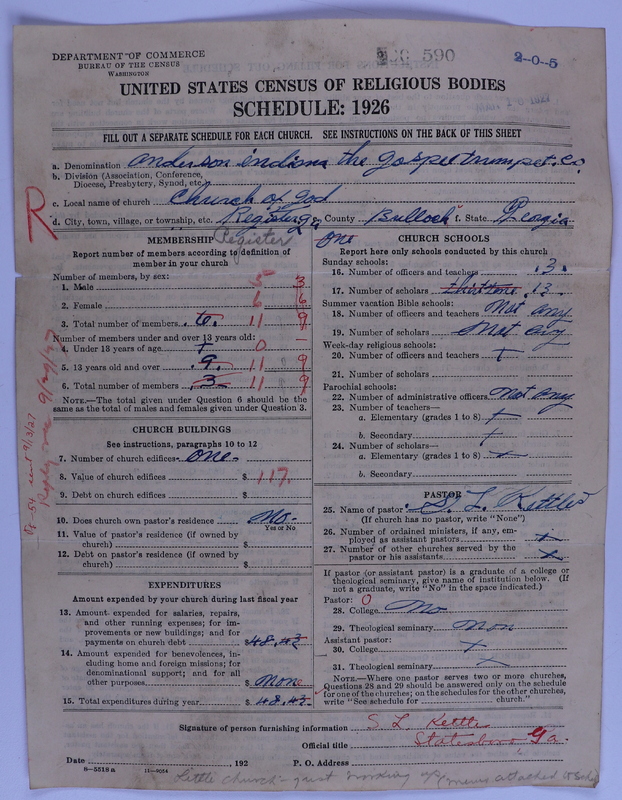 DEPARTMENT OF COMMERCE
BUREAU OF THE CENSUS
WASHINGTON
590
2-0-5
UNITED STATES CENSUS OF RELIGIOUS BODIES
SCHEDULE: 1926
FILL OUT A SEPARATE SCHEDULE FOR EACH CHURCH. SEE INSTRUCTIONS ON THE BACK OF THIS SHEET
a. Denomination anderson indiana the gospel trumpet. co.
b. Division (Association, Conference, Diocese, Presbytery, Synod, etc.)
c. Local name of church Church of god
R
d. City, town, village, or township, etc. Register ga e. County Bulloch f. State Georgia
Register
one
MEMBERSHIP
Report number of members according to definition of member in your church
Number of members, by sex:
1. Male 5 3
2. Female 6 6
3. Total number of members 6. 11 9
Number of members under and over 13 years old:
4. Under 13 years of age + 0 -
5. 13 years old and over 9. 11 9
6. Total number of members 3 11 9
NOTE.—The total given under Question 6 should be the same as the total of males and females given under Question 3.
CHURCH BUILDINGS
See instructions, paragraphs 10 to 12
7. Number of church edifices one
8. Value of church edifices $ 117.
9. Debt on church edifices $
10. Does church own pastor's residence No
Yes or No
11. Value of pastor's residence (if owned by church) $
12. Debt on pastor's residence (if owned by church) $
EXPENDITURES
Amount expended by your church during last fiscal year
13. Amount expended for salaries, repairs, and other running expenses; for improvements or new buildings; and for payments on church debt $48.43
14. Amount expended for benevolences, including home and foreign missions; for denominational support; and for all other purposes $ None
15. Total expenditures during year $ 48.43
CHURCH SCHOOLS
Report here only schools conducted by this church
Sunday schools:
16. Number of officers and teachers 3.
17. Number of scholars thirteen 13
Summer vacation Bible schools:
18. Number of officers and teachers Not any
19. Number of scholars Not any
Week-day religious schools:
20. Number of officers and teachers +
21. Number of scholars
Parochial schools:
22. Number of administrative officers Not any
23. Number of teachers—
a. Elementary (grades 1 to 8) +
b. Secondary +
24. Number of scholars—
a. Elementary (grades 1 to 8) +
b. Secondary
PASTOR
25. Name of pastor S. L. Kettles
(If church has no pastor, write "None")
26. Number of ordained ministers, if any, employed as assistant pastors +
27. Number of other churches served by the pastor or his assistants +
If pastor (or assistant pastor) is a graduate of a college or theological seminary, give name of institution below. (If not a graduate, write "No" in the space indicated.)
Pastor: O
28. College No
29. Theological seminary Non
Assistant pastor:
30. College +
31. Theological seminary +
NOTE.—Where one pastor serves two or more churches, Questions 28 and 29 should be answered only on the schedule for one of the churches; on the schedules for the other churches, write "See schedule for church."
Signature of person furnishing information S L Kettle
Official title Statesboro Ga.
Date , 192 P. O. Address
8-5518a 11-9054
Little church - just working up